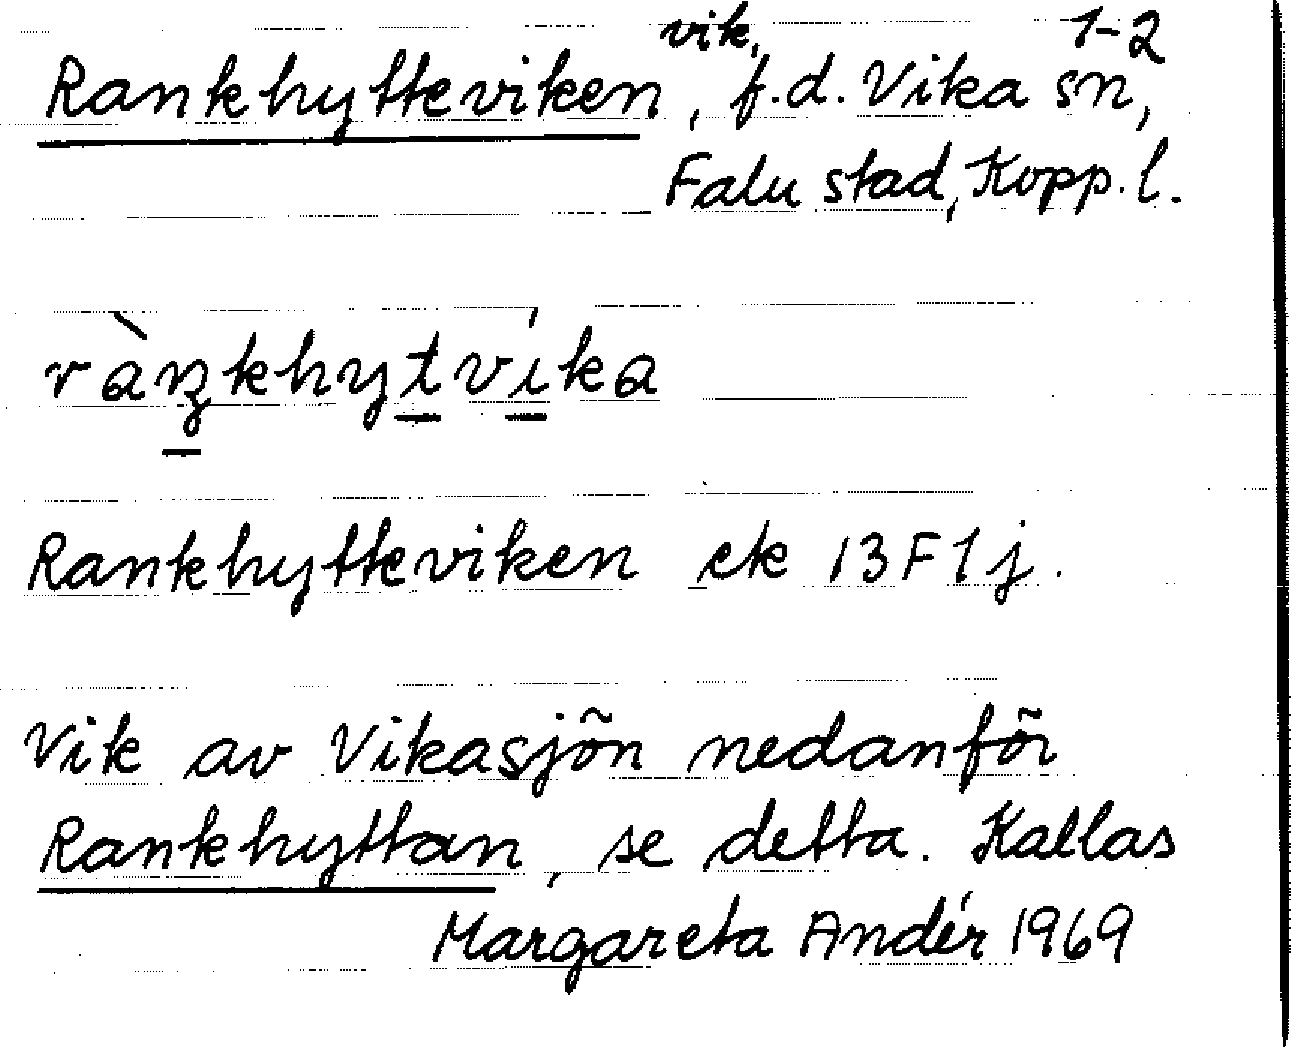 Rankhytteviken, vik, f.d. Vika sn, 1-2
Falu stad, Kopp. l.
ràŋkhytvíka
Rankhytteviken ek 13F1j.
Vik av Vikasjön nedanför
Rankhyttan, se detta. Kallas
Margareta Andér 1969